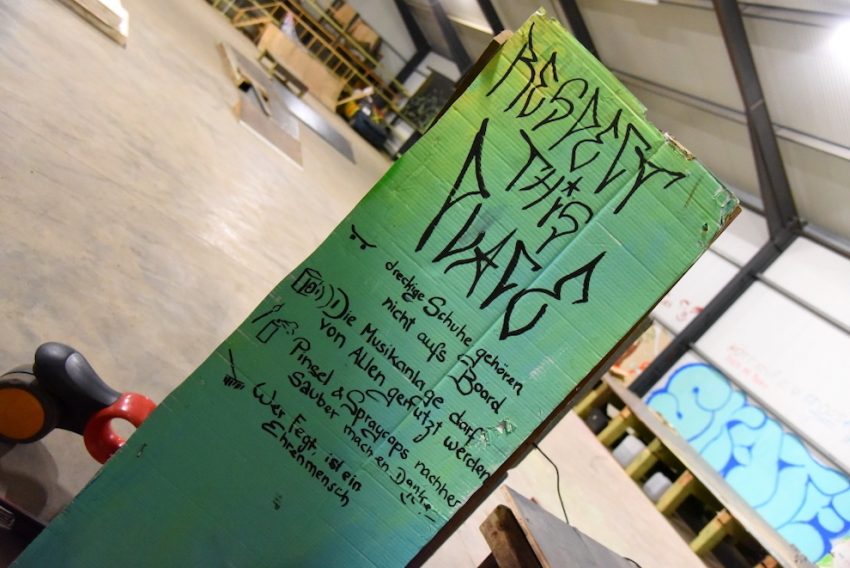 RESPECT
THIS
PLACE
dreckige Schuhe gehören
nicht aufs Board
Die Musikanlage darf
von Allen genutzt werden
Pinsel & Spraycaps nachher
Sauber machen Danke
Wer Fegt, ist ein
Ehrenmensch
SKATE